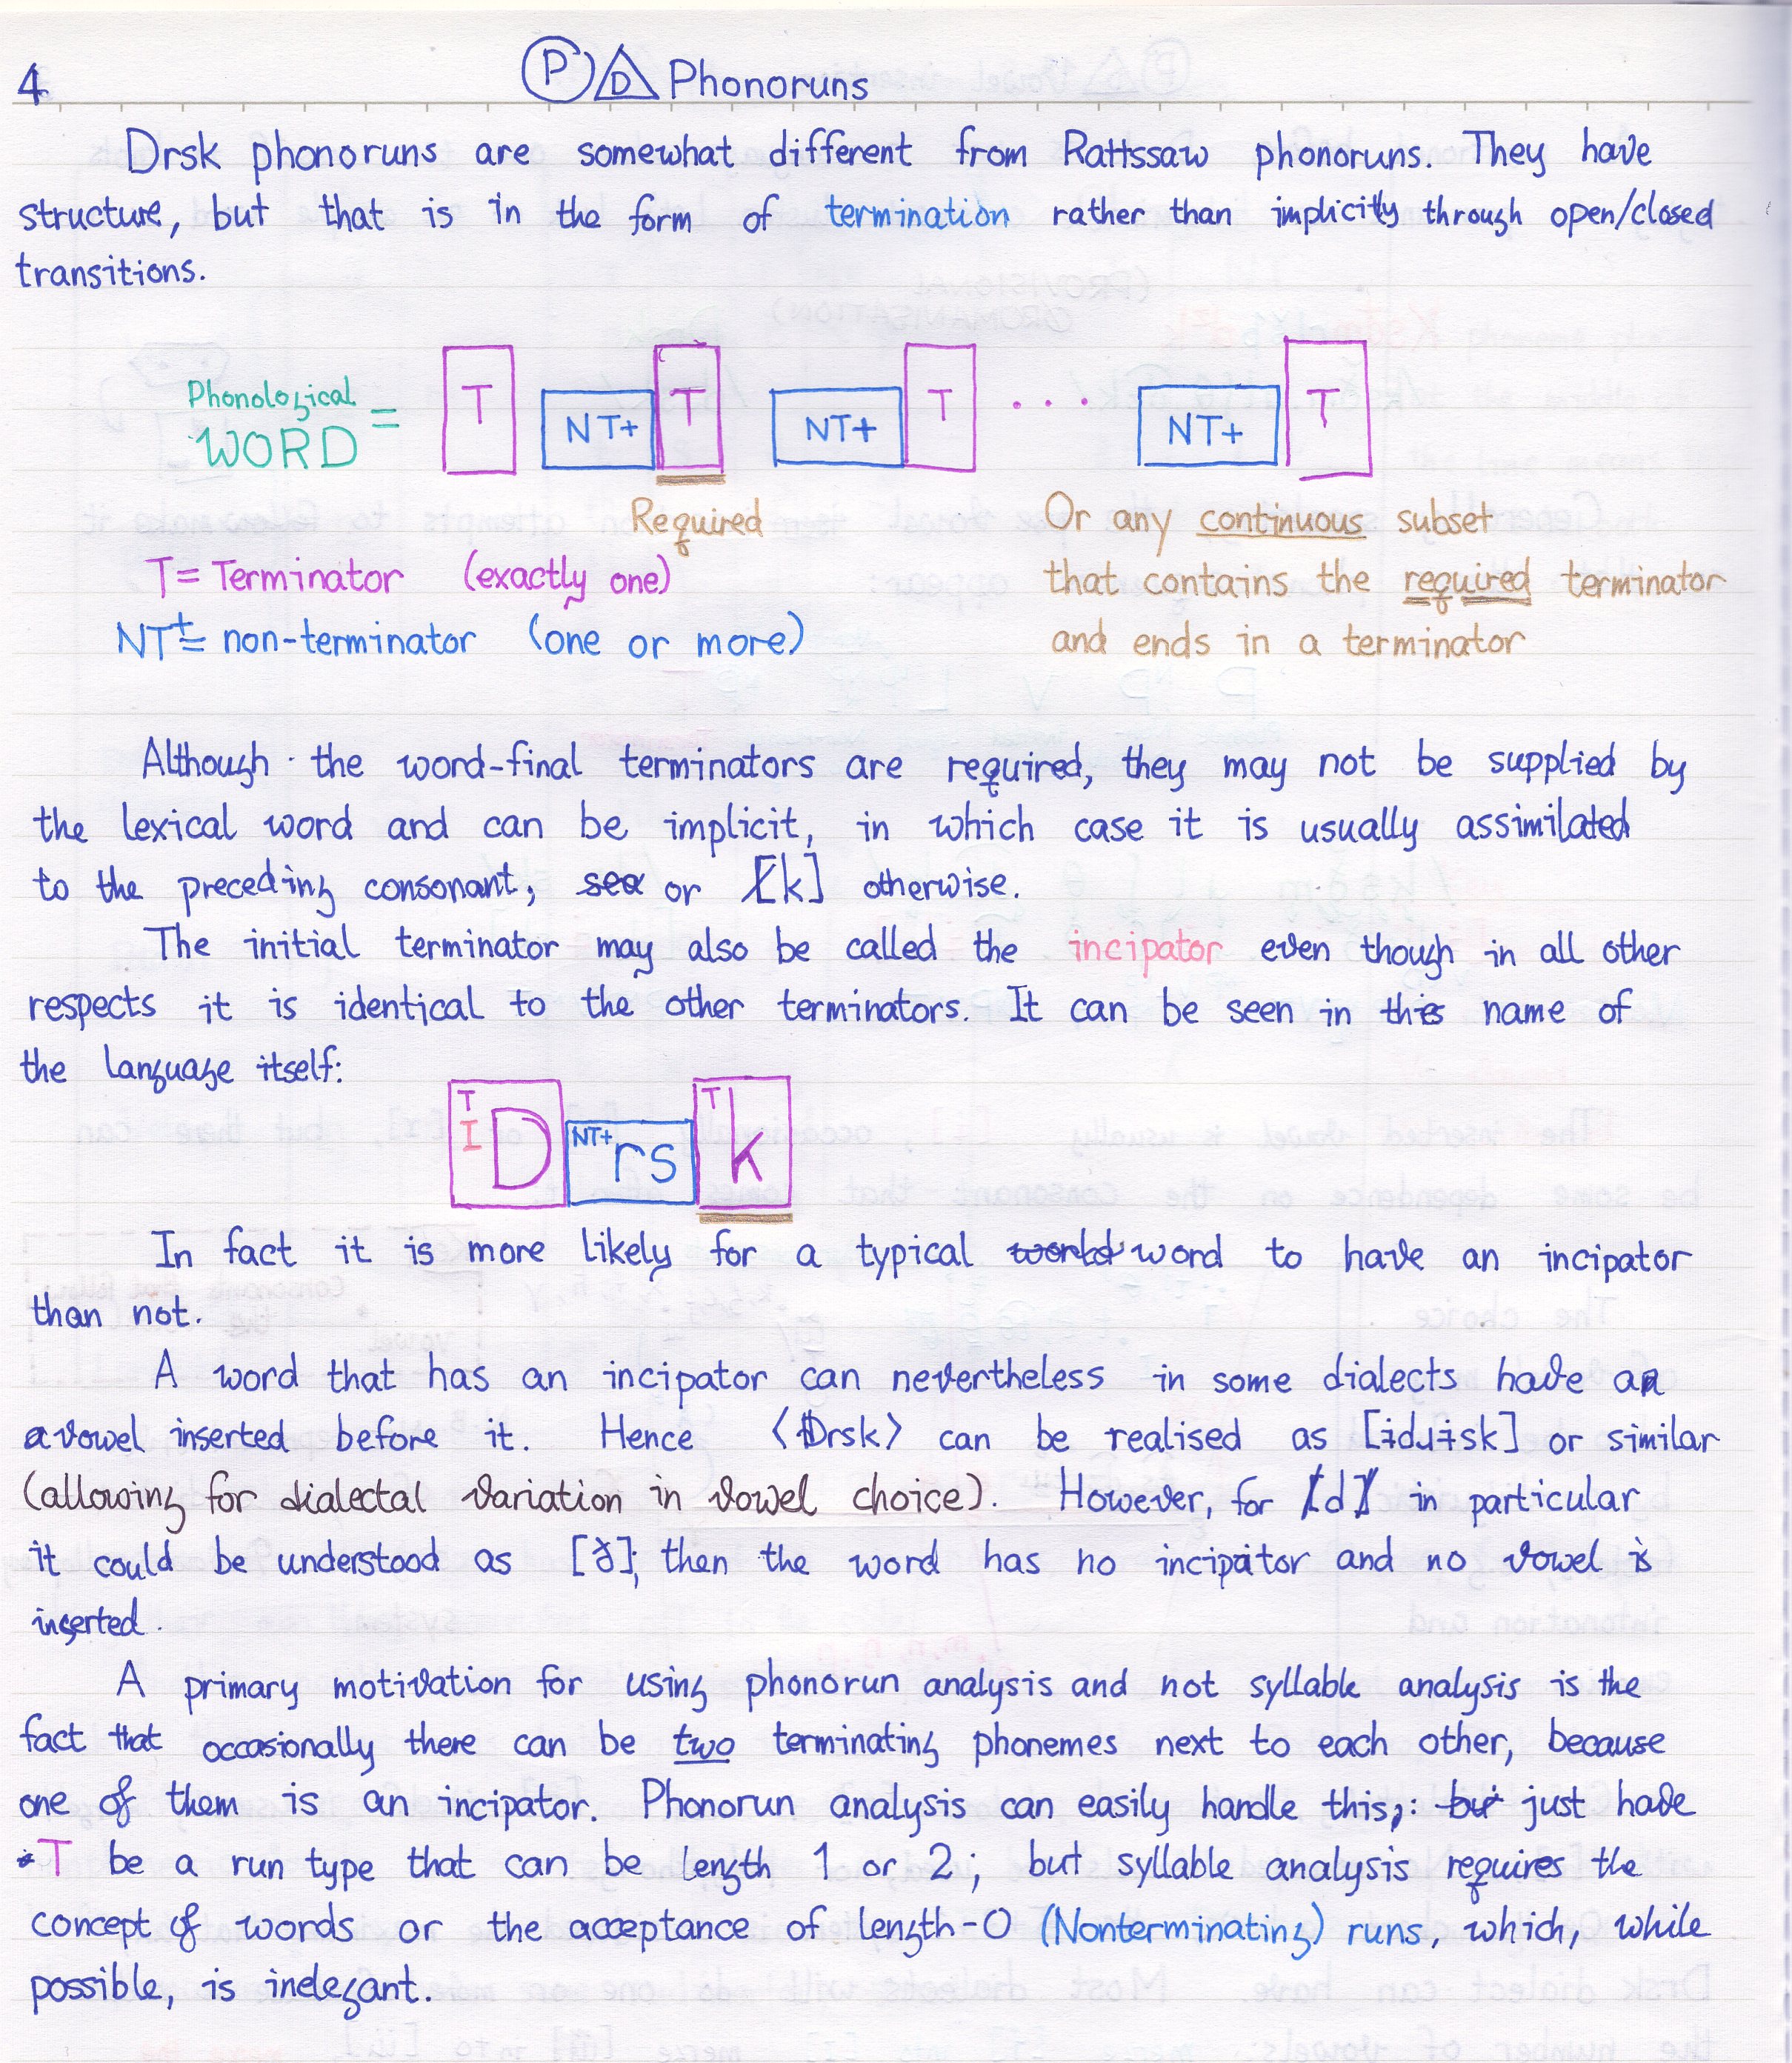 4
P D Phonoruns
Drsk phonoruns are somewhat different from Rattssaw phonoruns. They have
structure, but that is in the form of termination rather than implicitly through open/closed
transitions.
Phonological
WORD = T NT+ T NT+ T ... NT+ T
Required
T = Terminator (exactly one)
NT+ = non-terminator (one or more)
Or any continuous subset
that contains the required terminator
and ends in a terminator
Although the word-final terminators are required, they may not be supplied by
the lexical word and can be implicit, in which case it is usually assimilated
to the preceding consonant, or [k] otherwise.
The initial terminator may also be called the incipator even though in all other
respects it is identical to the other terminators. It can be seen in the name of
the language itself:
T I D NT+ rs T k
In fact it is more likely for a typical word to have an incipator
than not.
A word that has an incipator can nevertheless in some dialects have
a vowel inserted before it. Hence ⟨Drsk⟩ can be realised as [ɨdɹɨsk] or similar
(allowing for dialectal variation in vowel choice). However, for /d/ in particular
it could be understood as [ð]; then the word has no incipator and no vowel is
inserted.
A primary motivation for using phonorun analysis and not syllable analysis is the
fact that occasionally there can be two terminating phonemes next to each other, because
one of them is an incipator. Phonorun analysis can easily handle this: just have
T be a run type that can be length 1 or 2; but syllable analysis requires the
concept of words or the acceptance of length-0 (Nonterminating) runs, which, while
possible, is inelegant.